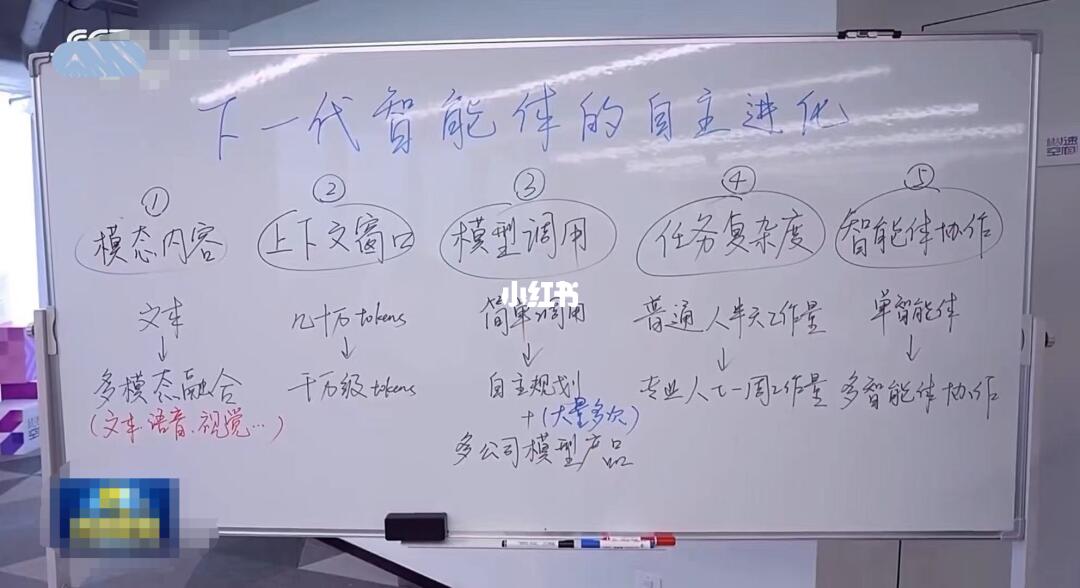 下一代智能体的自主进化
① ② ③ ④ ⑤
模态内容 上下文窗口 模型调用 任务复杂度 智能体协作
文本 几十万tokens 简单调用 普通人半天工作量 单智能体
↓ ↓ ↓ ↓ ↓
多模态融合 千万级tokens 自主规划 专业人士一周工作量 多智能体协作
(文本.语音.视觉…) +(大量多次)
多公司模型产品
小红书
空间